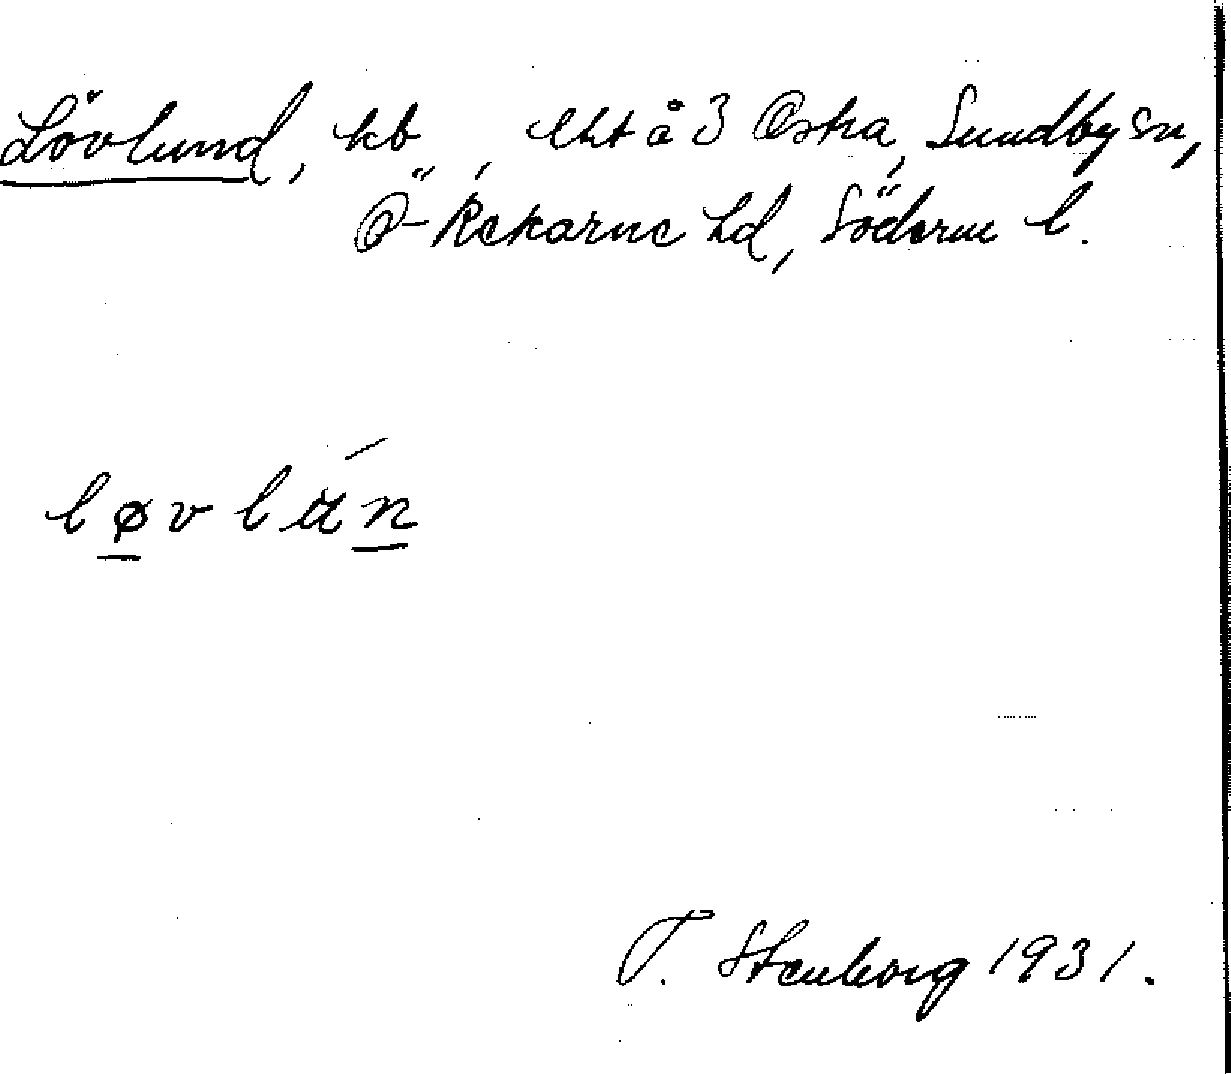 Lövlund, kb, lht å 3 Östra, Sundby sn,
Ö-Rekarne hd, Söderm l.
løvlun
T. Stenborg 1931.